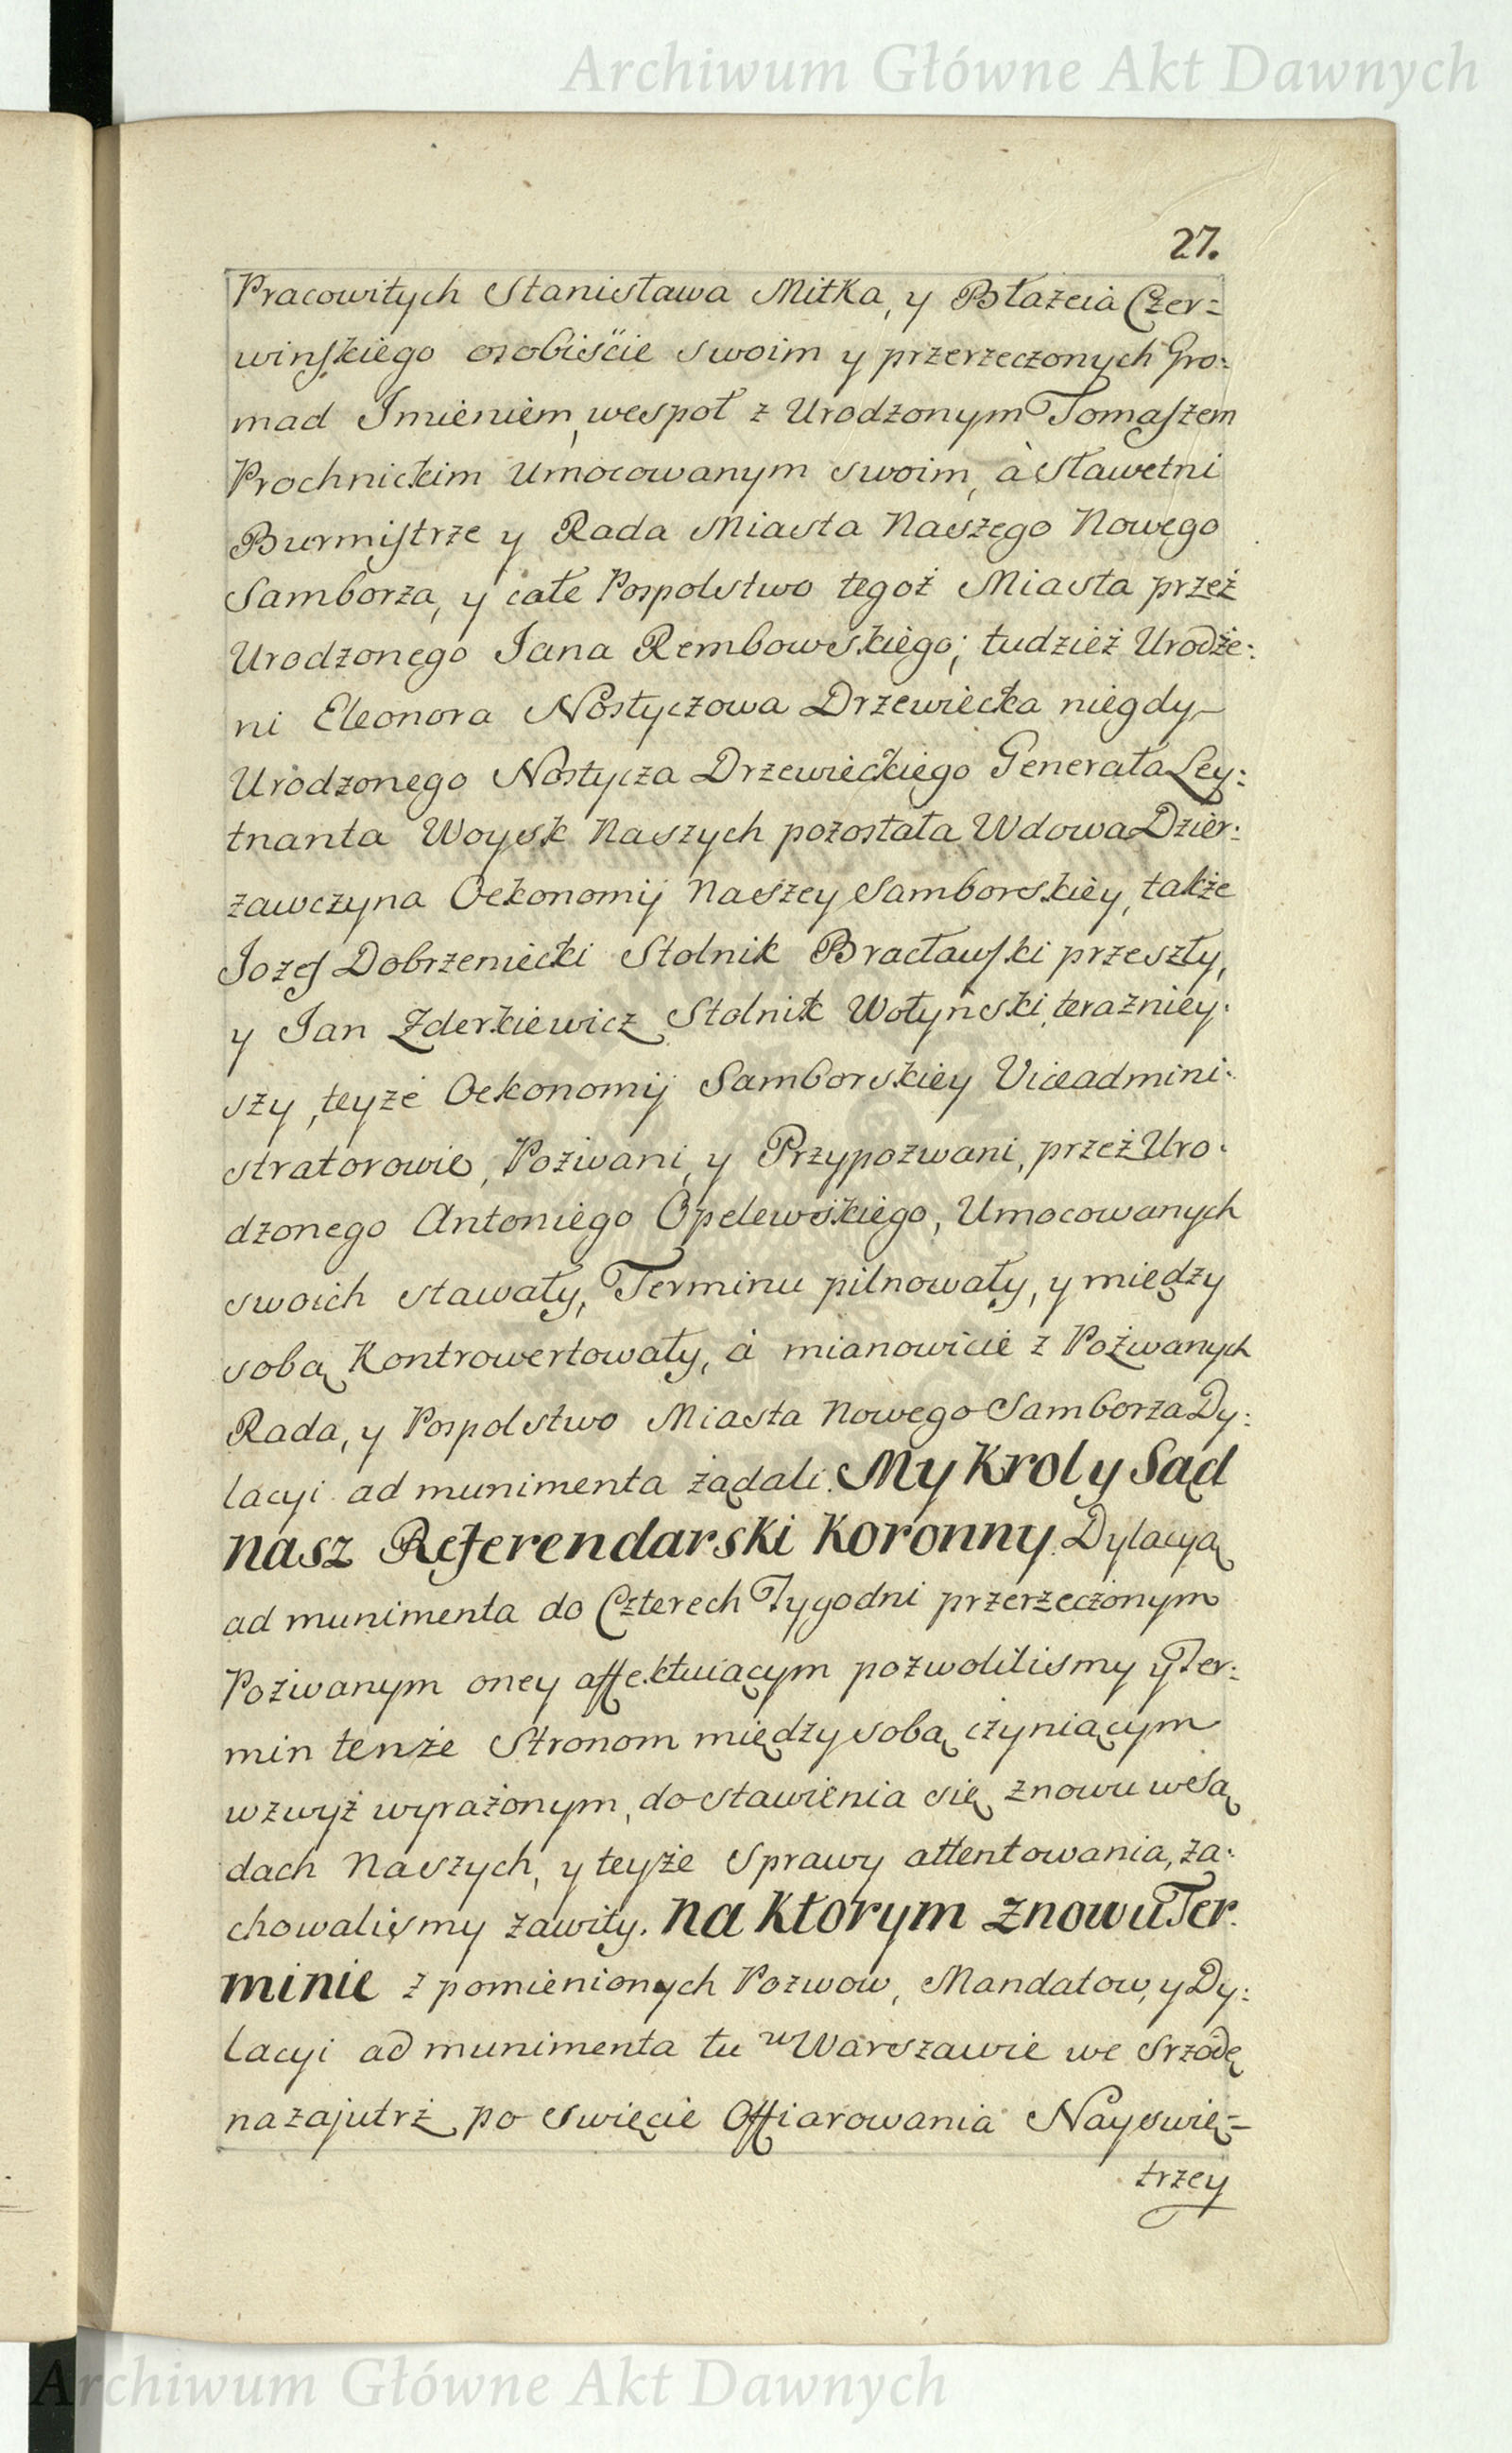 Archiwum Główne Akt Dawnych
27.
Pracowitych Stanisława Mitka, y Błażeia Czer=
winskiego osobiście swoim y przerzeczonych Gro:
mad Imieniem, wespoł z Urodzonym Tomaszem
Prochnickim Umocowanym swoim, à Sławetni
Burmistrze y Rada Miasta Naszego Nowego
Samborza, y całe Pospolstwo tegoż Miasta przez
Urodzonego Jana Rembowskiego; tudzież Urodze:
ni Eleonora Nostyczowa Drzewiecka niegdy
Urodzonego Nostycza Drzewieckiego Generała Ley:
tnanta Woysk Naszych pozostała Wdowa Dzier:
żawczyna Oekonomij Naszey Samborskiey, także
Jozef Dobrzeniecki Stolnik Bracławski przeszły,
y Jan Zderkiewicz Stolnik Wołynski terażniey:
szy, teyże Oekonomij Samborskiey Viceadmini:
stratorowie, Pozwani, y Przypozwani, przez Uro:
dzonego Antoniego Opelewskiego, Umocowanych
swoich stawały, Terminu pilnowały, y między
sobą Kontrowertowały, à mianowicie z Pozwanych
Rada, y Pospolstwo Miasta Nowego Samborza Dy:
lacyi ad munimenta żądali. My Krol y Sąd
nasz Referendarski Koronny. Dylacyą
ad munimenta do Czterech Tygodni przerzeczonym
Pozwanym oney affektuiącym pozwolilismy y Ter:
min tenże Stronom między sobą czyniącym
wzwyż wyrażonym, do stawienia się znowu w Są
dach Naszych, y teyże Sprawy attentowania, za:
chowalismy zawity. na Ktorym znowu Ter:
minie z pomienionych Pozwow, Mandatow, y Dy:
lacyi ad munimenta tu w Warszawie we Srzodę
nazajutrz po Swięcie Offiarowania Nayswię=
trzey
Archiwum Główne Akt Dawnych